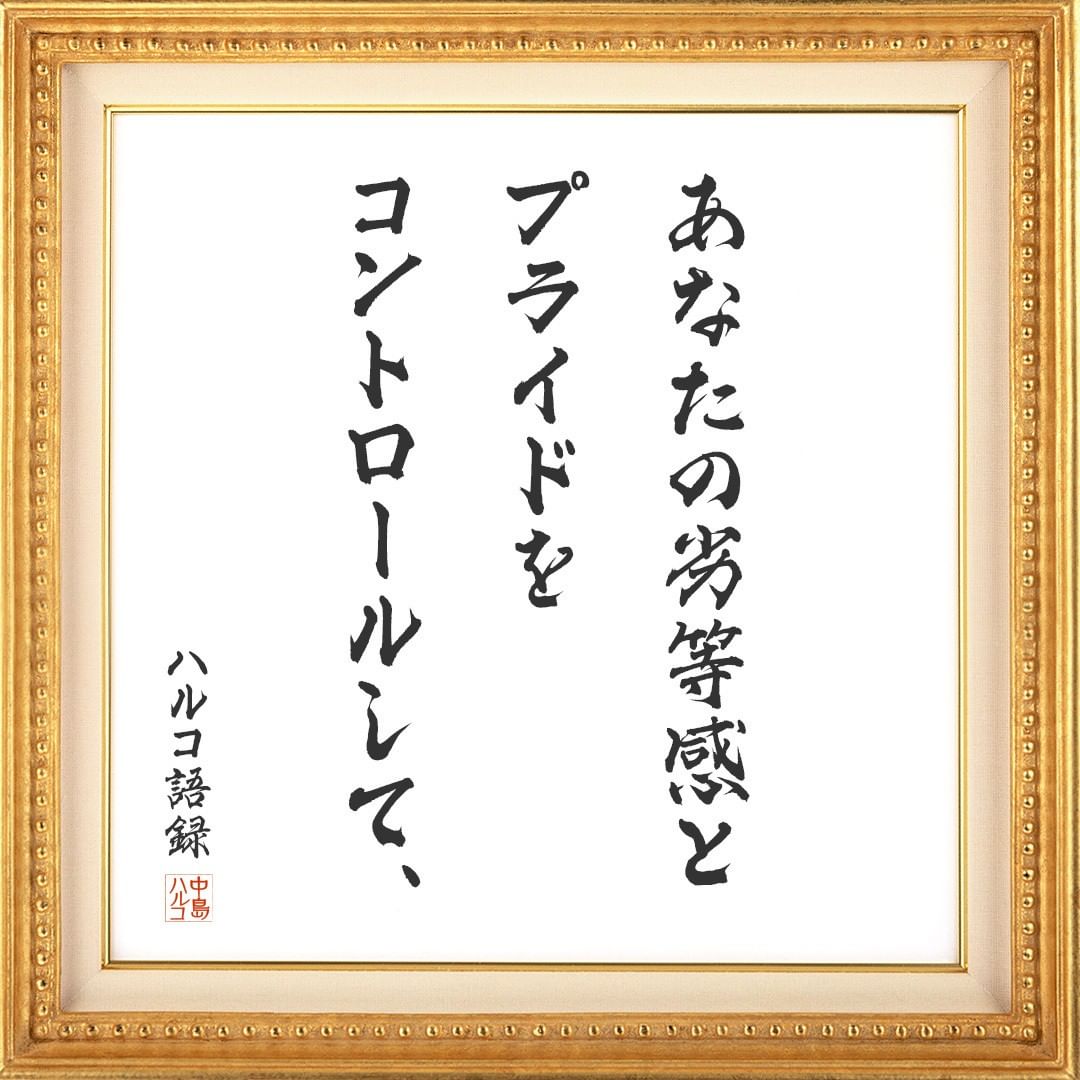 あなたの劣等感と
プライドを
コントロールして、
ハルコ語録
中島
ハルコ